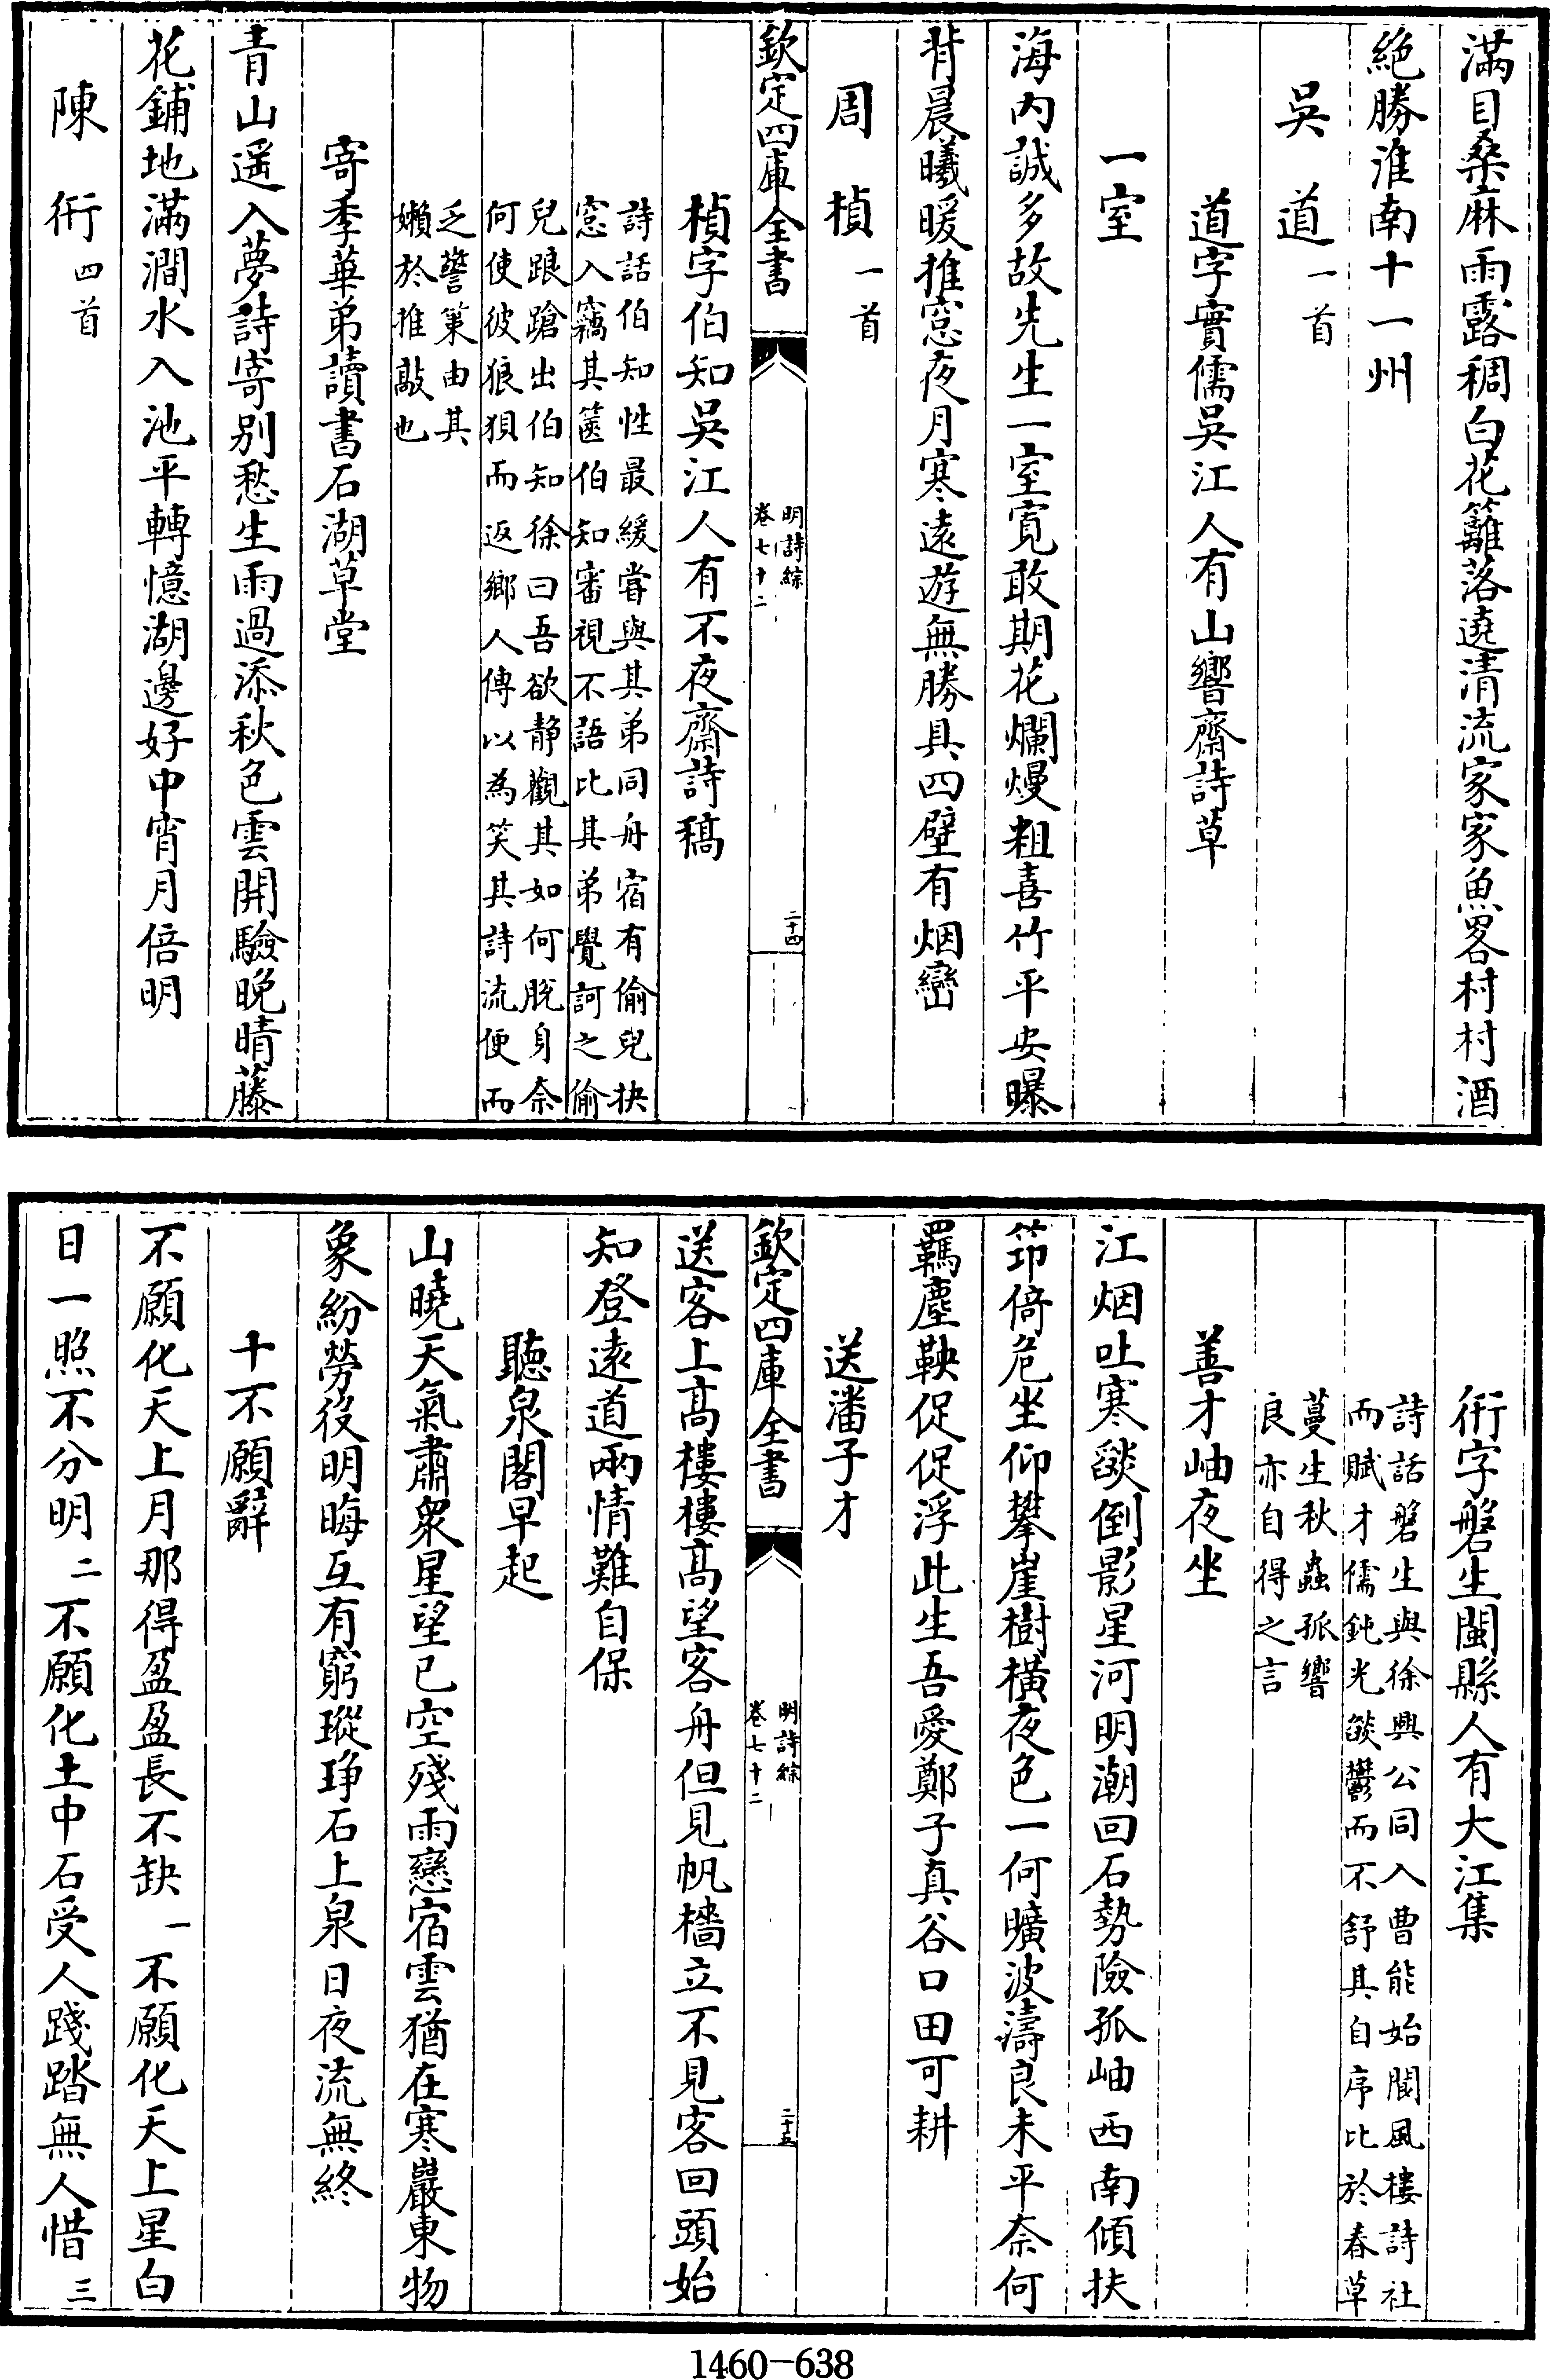 滿目桑麻雨露稠白花籬落遶清流家家魚畧村村酒
絶勝淮南十一州
吳道一首
道字實儒吳江人有山響齋詩草
一室
海内誠多故先生一室寛敢期花爛熳粗喜竹平安曝
背晨曦暖推窓夜月寒逺遊無勝具四壁有烟巒
周楨一首
欽定四庫全書
明詩綜
卷七十二
二十四
楨字伯知吳江人有不夜齋詩稿
詩話伯知性最緩嘗與其弟同舟宿有偷兒抉
窓入竊其篋伯知審視不語比其弟覺訶之偷
兒踉蹌出伯知徐曰吾欲静觀其如何脱身奈
何使彼狼狽而返鄉人傳以為笑其詩流便而
乏警策由其
嬾於推敲也
寄季華弟讀書石湖草堂
青山遥入夢詩寄别愁生雨過添秋色雲開驗晚晴藤
花鋪地滿澗水入池平轉憶湖邊好中宵月倍明
陳衎四首
衎字磐生閩縣人有大江集
詩話磐生與徐興公同入曹能始閬風樓詩社
而賦才儒鈍光燄鬱而不舒其自序比於春草
蔓生秋蟲孤響
良亦自得之言
善才岫夜坐
江烟吐寒燄倒影星河明潮回石勢險孤岫西南傾扶
筇倚危坐仰攀崖樹横夜色一何曠波濤良未平奈何
羈塵鞅促促浮此生吾愛鄭子真谷口田可耕
送潘子才
欽定四庫全書
明詩綜
卷七十二
二十五
送客上髙樓樓髙望客舟但見帆檣立不見客回頭始
知登逺道兩情難自保
聽泉閣早起
山曉天氣肅衆星望已空殘雨戀宿雲猶在寒巖東物
象紛勞役明晦互有窮瑽琤石上泉日夜流無終
十不願辭
不願化天上月那得盈盈長不缺一不願化天上星白
日一照不分明二不願化土中石受人踐踏無人惜三
1460-638